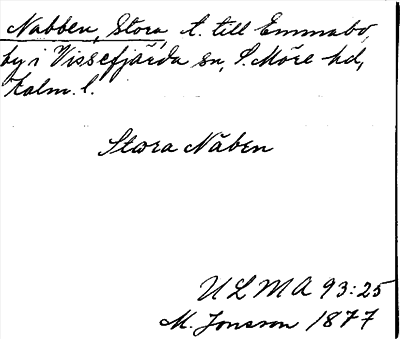 Nabben, Stora, t. till Emmabo,
by i Vissefjärda sn, S. Möre hd,
Kalm. l.
Stora Näben
ULMA 93:25
M. Jonsson 1877